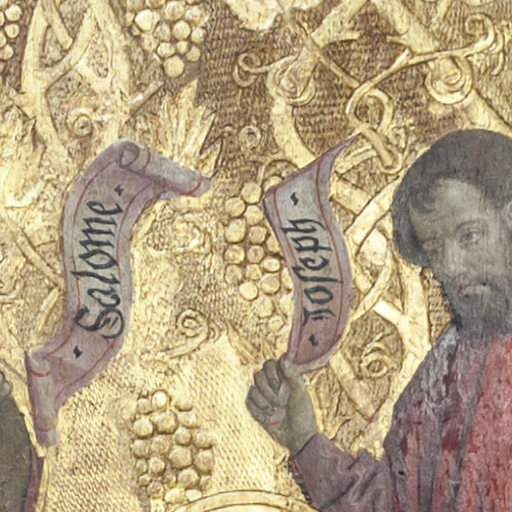 ·Salome·
·Joseph·